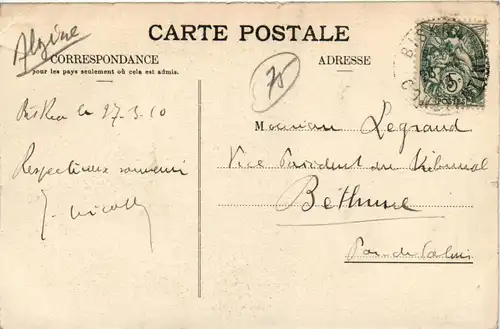 Algérie
CARTE POSTALE
CORRESPONDANCE
pour les pays seulement où cela est admis.
ADRESSE
75
Biskra le 27-3-10
Respectueux souvenir
J. Nicoll
Monsieur Legrand
Vice Président du Tribunal
Béthune
Pas de Calais
5
POSTES